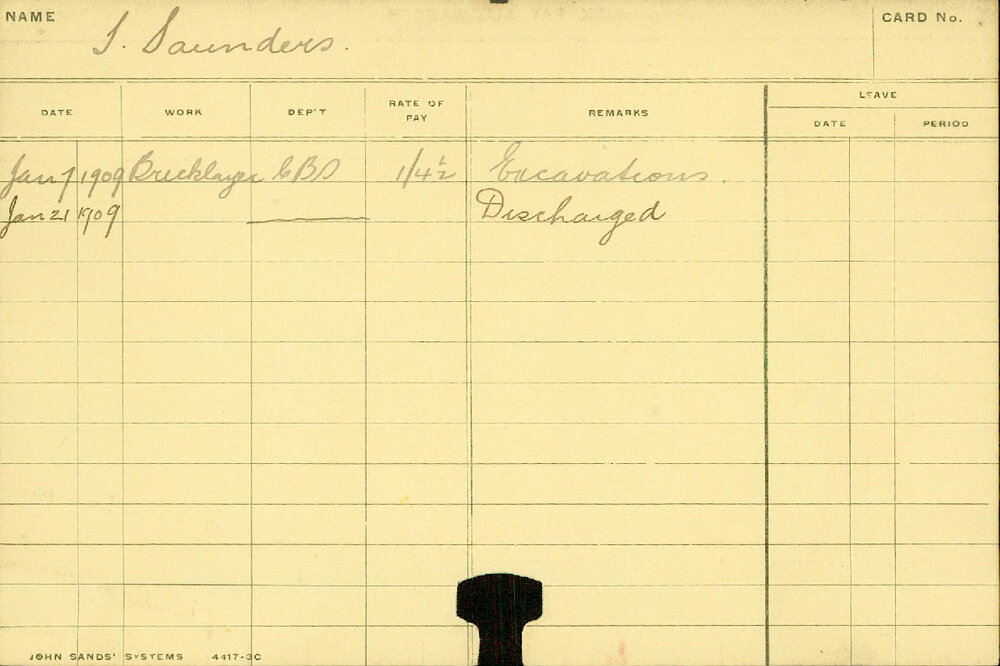 NAME S. Saunders. CARD No.
LEAVE
DATE WORK DEP'T RATE OF PAY REMARKS DATE PERIOD
Jan 7 1909 Bricklayer CBD 1/4½ Excavations.
Jan 21 1909 Discharged
JOHN SANDS' SYSTEMS 4417-3C